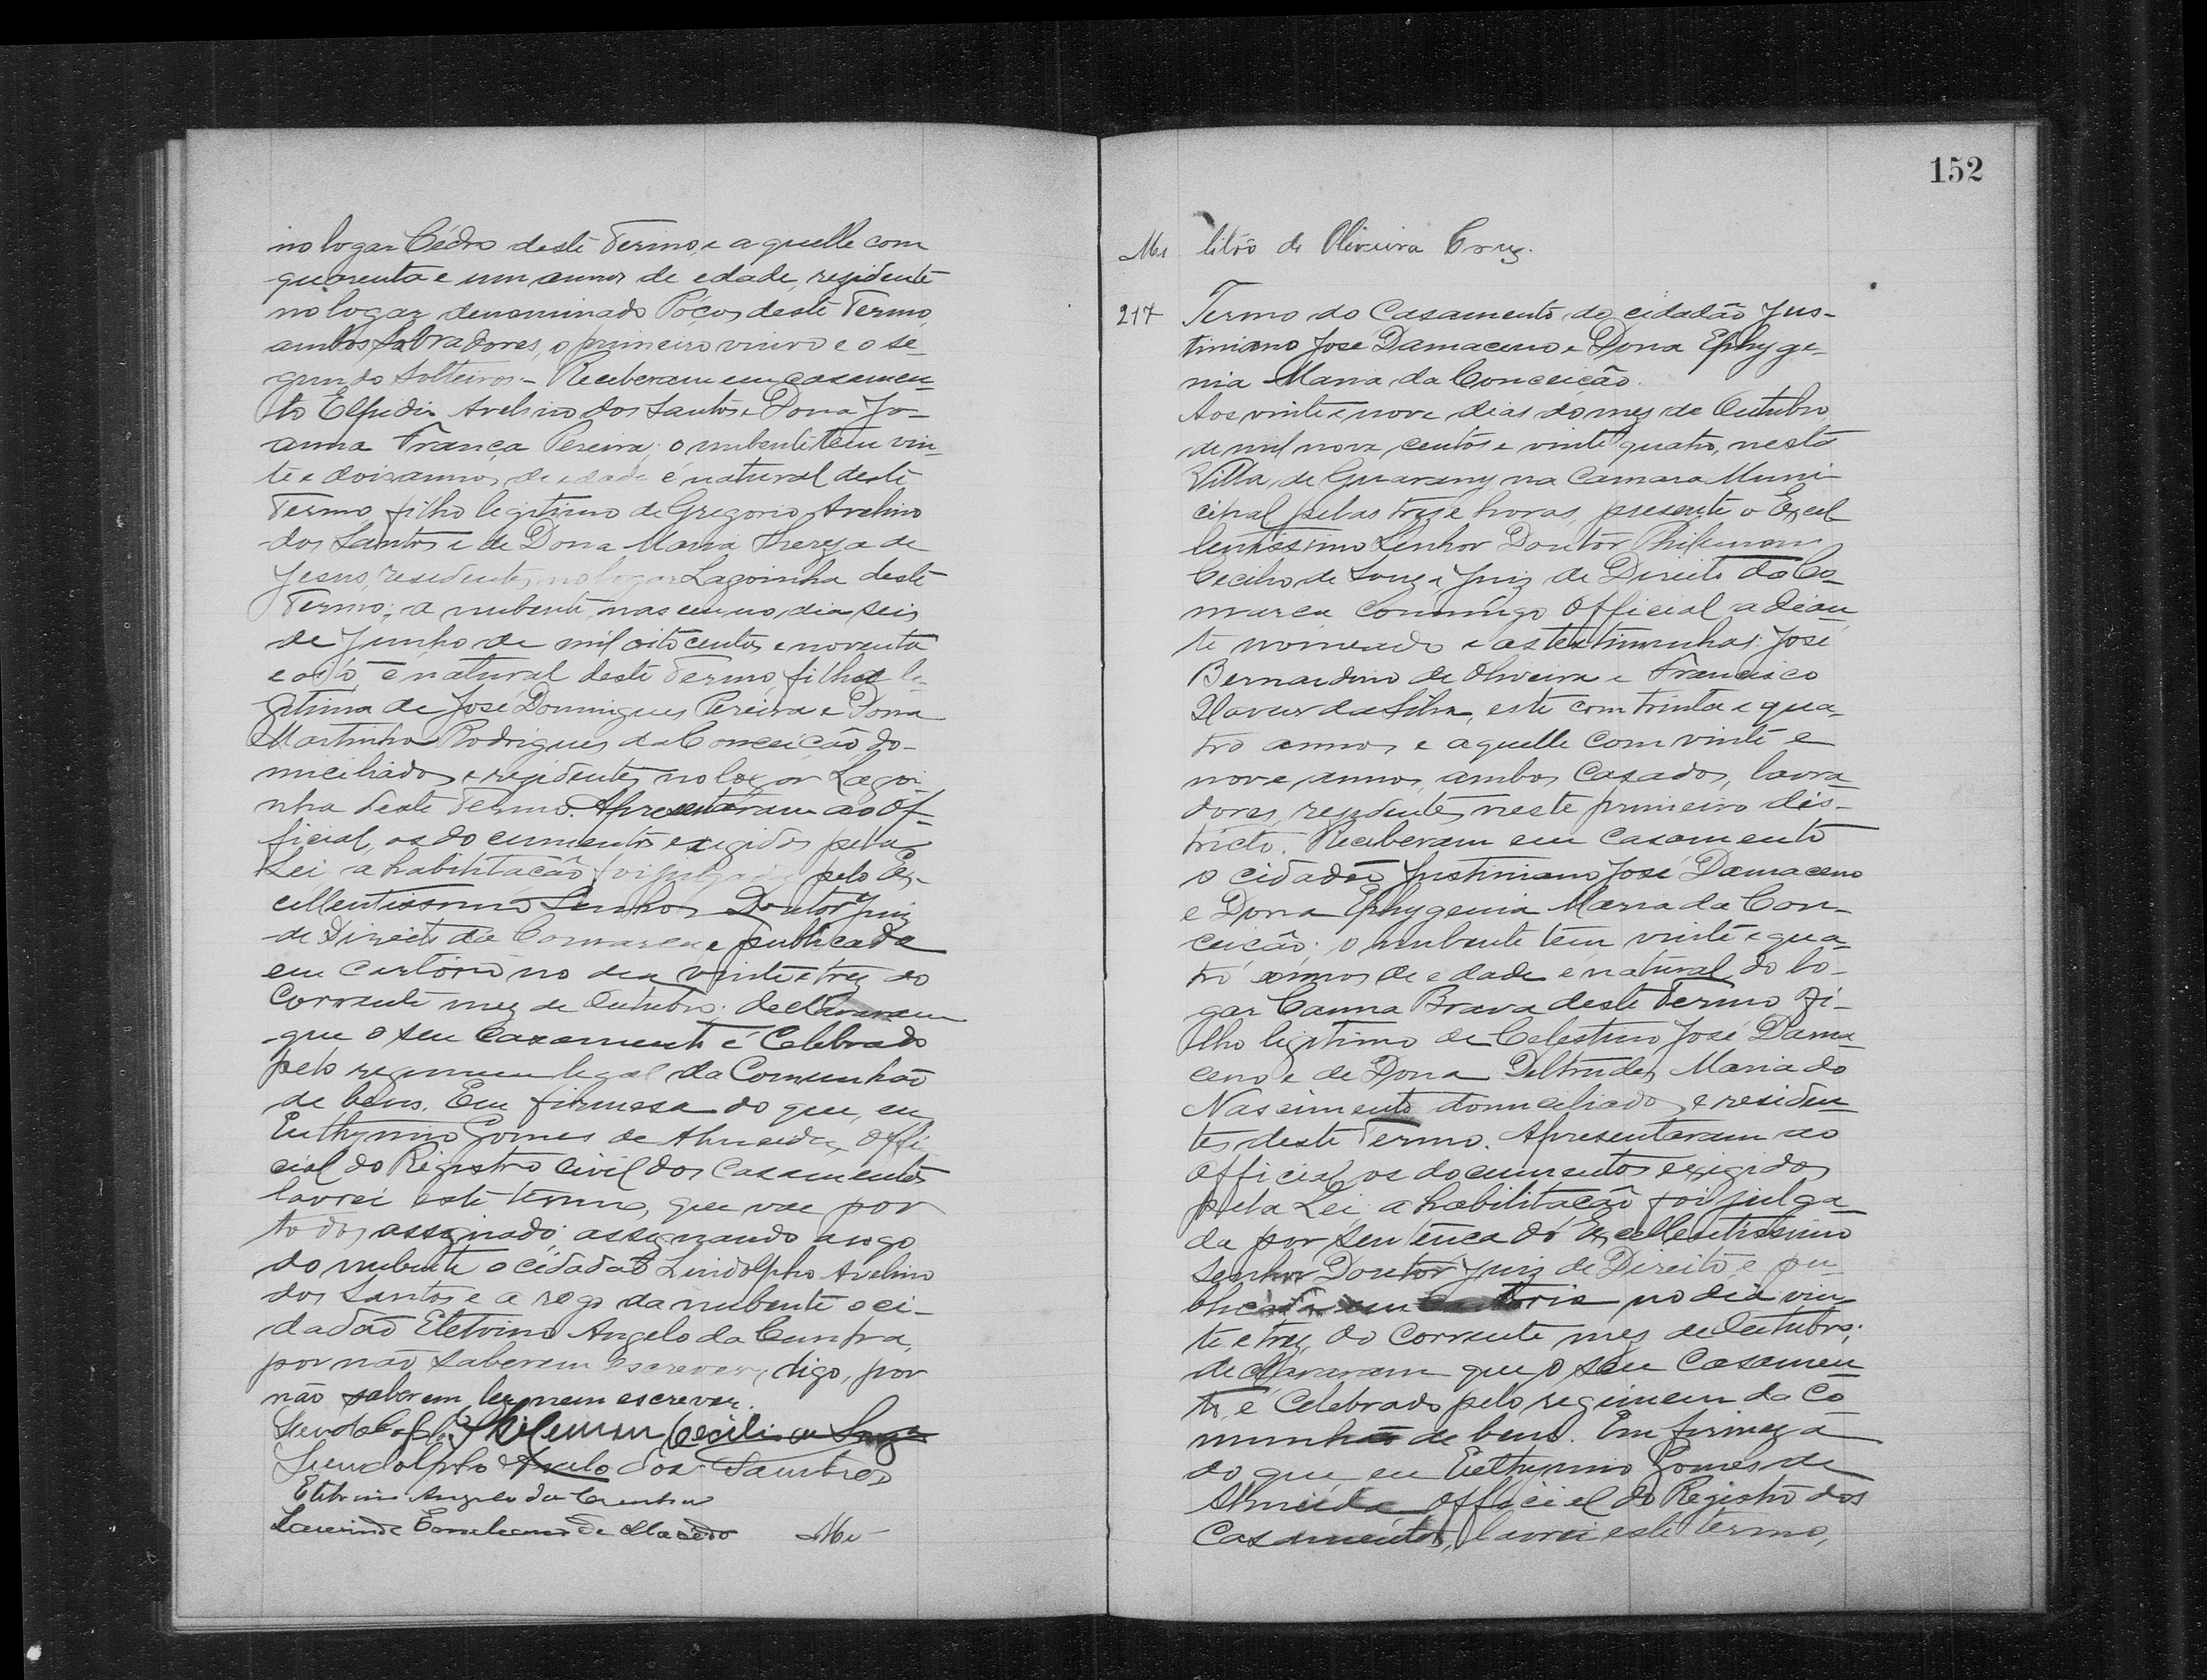 no logar Cédro deste Termo, e aquelle com
quarenta e um annos de edade, rezidente
no logar denominado Póços deste Termo,
ambos labradores, o primeiro viuvo e o se-
gundo solteiros. - Receberam em casamen-
to Elpidio Avelino dos Santos e Dona Jo-
anna França Pereira; o nubente tem vin-
te e dois annos de edade é natural deste
Termo, filho legitimo de Gregorio Avelino
dos Santos e de Dona Maria Thereza de
Jesus, residentes no logar Lagoinha deste
Termo; a nubente nasceu no dia seis
de Junho de mil oito centos e noventa
e oito, é natural deste Termo, filha le-
gitima de José Domingues Pereira e Dona
Martinha Rodrigues da Conceição, do-
miciliados e rezidentes no logar Lagoi-
nha deste Termo. Apresentaram ao Of-
ficial, os documentos exigidos pela
Lei a habilitacão foi julgada pelo Ex-
cellentissimo Senhor Doutor Juiz
de Direito da Comarca e publicada
em cartorio no dia vinte e trez do
corrente mez de Outubro; declararam
que o seu casamento é Celebrado
pelo regimem legal da Comunhão
de bens. Em firmesa do que, eu
Euthymio Gomes de Almeida, Offi-
cial do Registro Civil dos Casamentos
lavrei este termo, que vae por
todos assignado: assignando a rogo
do nubente o cidadão Lindolpho Avelino
dos Santos e a rogo da nubente o ci-
dadão Etelvino Angelo da Cunha,
por não saberem escrever, digo, por
não saberem ler nem escrever.
Philemon Cecilio de Souza
Lindolpho Avelo dos Santos
Etelvino Angelo da Cunha
Laurindo de Macêdo Me-
152
Me litão de Oliveira Cruz.
217 Termo do Casamento do cidadão Jus-
tiniano José Damaceno e Dona Ephyge-
nia Maria da Conceição.
Aos vinte e nove dias do mez de Outubro
de mil nove centos e vinte quatro, nesta
Villa de Guarany na Camara Muni-
cipal pelas treze horas, presente o Excel-
lentissimo Senhor Doutor Philemon
Cecilio de Souza Juiz de Direito da Co-
marca commigo Official adian-
te nomeado e as testimunhas: José
Bernardino de Oliveira e Francisco
Xavier da Silva, este com trinta e qua-
tro annos e aquelle com vinte e
nove annos, ambos casados, lavra-
dores, rezidentes neste primeiro dis-
tricto. Receberam em casamento
o cidadão Justiniano José Damaceno
e Dona Ephygenia Maria da Con-
ceicão; o nubente tem vinte e qua-
tro annos de edade é natural do lo-
gar Canna Brava deste Termo fi-
lho legitimo de Celestino José Dama-
ceno e de Dona Deltrudes Maria do
Nascimento domiciliados e residen-
tes deste Termo. Apresentaram ao
Official os documentos exigidos
pela Lei a habilitacão foi julga-
da por sentença do Excellentissimo
Senhor Doutor Juiz de Direito e pu-
blicada em Cartorio no dia vin-
te e trez do corrente mez de Outubro;
declararam que o seu Casamen-
to, é Celebrado pelo regimem da Co-
munhão de bens. Em firmeza
do que eu Euthymio Gomes de
Almeida Official do Registro dos
Casamentos, lavrei este termo,